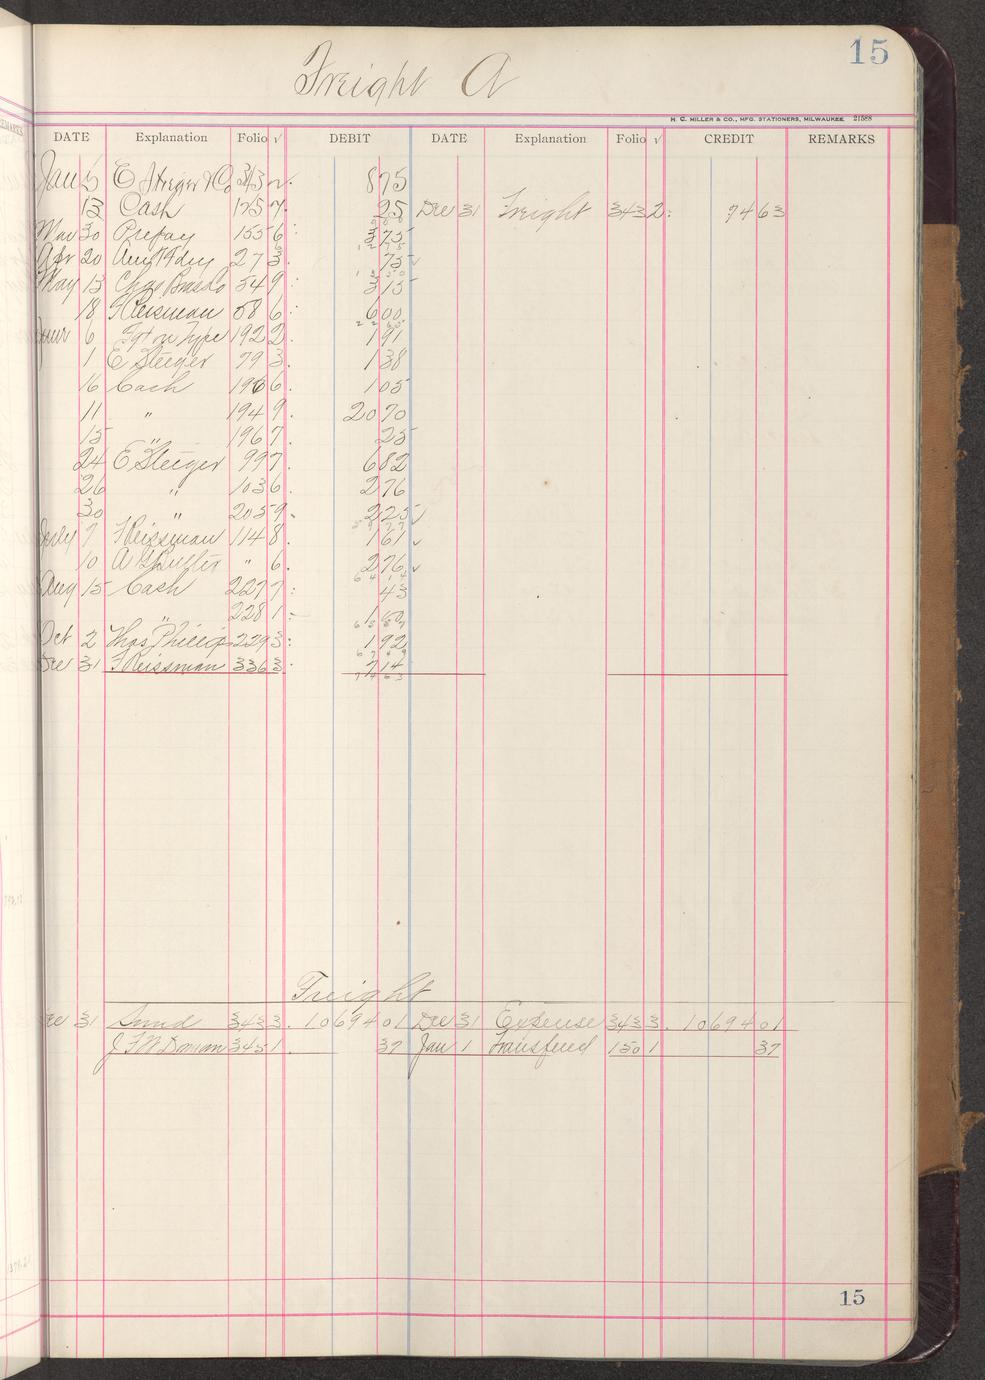 15
Freight A
H. C. MILLER & CO., MFG. STATIONERS, MILWAUKEE 21588
DATE Explanation Folio √ DEBIT DATE Explanation Folio √ CREDIT REMARKS
Jan 5 E Steiger & Co 343 8 75
13 Cash 125 7 25 Dec 31 Freight 343 2 74 63
Mar 30 Prepay 155 6 3 75
Apr 20 27 3 75
May 13 Chas 54 9 3 15
18 F Reissman 58 6 6 00
June 6 Fgt on Type 192 2 1 91
1 E Steiger 79 3 1 38
16 Cash 196 6 1 05
11 " 194 9 20 70
15 " 196 7 25
24 E Steiger 99 7 6 82
26 " 103 6 2 76
30 " 205 9 2 25
July 7 F Reissman 114 8 1 61
10 A G Butler " 6 2 76
Aug 15 Cash 227 7 43
" 228 1
Oct 2 Thos Phillips 229 3 1 92
Dec 31 F Reissman 336 3 7 14
74 63
Freight
Dec 31 Sund 343 3 10694 01 Dec 31 Expense 343 3 10694 01
345 1 37 Jan 1 Transfered 150 1 37
15